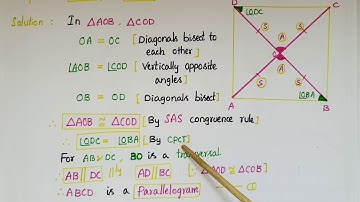 Solution : In △AOB , △COD
OA = OC [Diagonals bisect to
each other]
∠AOB = ∠COD [Vertically opposite
angles]
OB = OD [Diagonals bisect]
∴ △AOB ≅ △COD [By SAS congruence rule]
∴ ∠ODC = ∠OBA [By CPCT]
For AB, DC , BD is a transversal.
∴ AB || DC || ly AD || BC [∵ △AOD ≅ △COB]
∴ ABCD is a Parallelogram
D
C
∠ODC
S
S
A
A
O
A
S
S
∠OBA
A
B